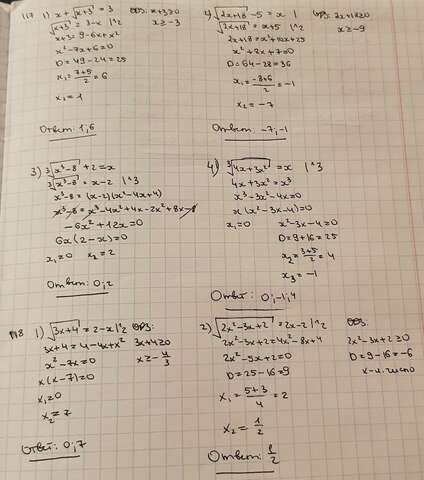 117 1) x + √x+3 = 3   ОДЗ: x+3≥0
√x+3 = 3-x |^2   x≥-3
x+3 = 9-6x+x²
x²-7x+6=0
D=49-24=25
x₁ = 7+5/2 = 6
x₂ = 1
Ответ: 1; 6
2) √2x+18 - 5 = x |   ОДЗ: 2x+18≥0
√2x+18 = x+5 |^2   x≥-9
2x+18 = x²+10x+25
x²+8x+7=0
D=64-28=36
x₁ = -8+6/2 = -1
x₂ = -7
Ответ: -7; -1
3) ³√x³-8 + 2 = x
³√x³-8 = x-2 |^3
x³-8 = (x-2)(x²-4x+4)
x³-8 = x³-4x²+4x-2x²+8x-8
-6x²+12x=0
6x(2-x)=0
x₁=0   x₂=2
Ответ: 0; 2
4) ³√4x+3x² = x |^3
4x+3x² = x³
x³-3x²-4x=0
x(x²-3x-4)=0
x₁=0   x²-3x-4=0
D=9+16=25
x₂ = 3+5/2 = 4
x₃ = -1
Ответ: 0; -1; 4
118 1) √3x+4 = 2-x |^2   ОДЗ:
3x+4 = 4-4x+x²   3x+4≥0
x²-7x=0   x≥-4/3
x(x-7)=0
x₁=0
x₂=7
Ответ: 0; 7
2) √2x²-3x+2 = 2x-2 |^2   ОДЗ:
2x²-3x+2 = 4x²-8x+4   2x²-3x+2≥0
2x²-5x+2=0   D=9-16=-6
D=25-16=9   к-м. число
x₁ = 5+3/4 = 2
x₂ = 1/2
Ответ: 1/2